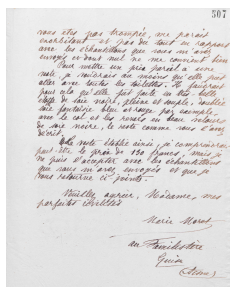 507
vous êtes pas trompée, me paraît
exorbitant et pas du tout en rapport
avec les échantillons que vous m'avez
envoyés et dont nul ne me convient bien
Pour mettre un prix pareil à une
robe, je voudrais au moins qu'elle pût
aller avec toutes les toilettes. Il faudrait
pour cela qu'elle fût faite en très belle
étoffe de soie noire, pleine et souple, doublée
de fantaisie bleu et rouge par exemple
avec le col et les revers en beau velours
de soie noire, le reste comme vous l'avez
décrit.
robe établie ainsi, je comprendrais
peut être le prix de 130 francs, mais je
ne puis l'accepter avec les échantillons
que vous m'avez envoyés et que je
vous retourne ci joints.
Veuillez agréer, Madame, mes
parfaites civilités
Marie Moret
au Familistère
Guise
(Aisne)